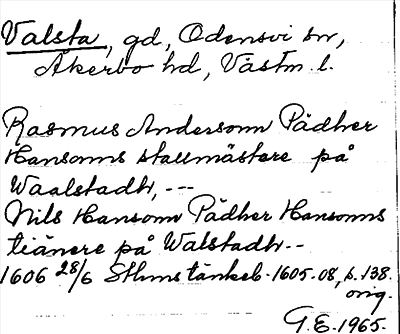 Valsta, gd, Odensvi sn,
Åkerbo hd, Västm. l.
Rasmus Andersonn Pädher
Hansonns stallmästare på
Waalstadh, ---
Nils Hansonn Pädher Hansonns
tiänere på Walstadh--
1606 28/6 Sthms tänkeb. 1605-08, s. 138.
orig.
G.E. 1965.